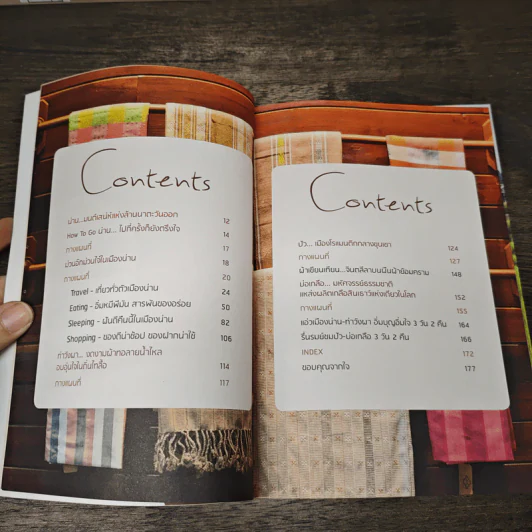 Contents
น่าน...มนต์เสน่ห์แห่งล้านนาตะวันออก 12
How To Go น่าน... ไปกี่ครั้งก็ยังตรึงใจ 14
กางแผนที่ 17
ม่วนอกม่วนใจในเมืองน่าน 18
กางแผนที่ 20
Travel - เที่ยวทั่วตัวเมืองน่าน 24
Eating - อิ่มหมีพีมัน สารพันของอร่อย 50
Sleeping - ฝันดีคืนนี้ในเมืองน่าน 82
Shopping - ของดีน่าช้อป ของฝากน่าใช้ 106
ท่าวังผา... งดงามผ้าทอลายน้ำไหล
อบอุ่นใจในถิ่นไทลื้อ 114
กางแผนที่ 117
Contents
ปัว... เมืองโรแมนติกกลางขุนเขา 124
กางแผนที่ 127
ผ้าเขียนเทียน...จินตลีลาบนผืนผ้าย้อมคราม 148
บ่อเกลือ... มหัศจรรย์ธรรมชาติ
แหล่งผลิตเกลือสินเธาว์แห่งเดียวในโลก 152
กางแผนที่ 155
แอ่วเมืองน่าน-ท่าวังผา อิ่มบุญอิ่มใจ 3 วัน 2 คืน 164
รื่นรมย์ชมปัว-บ่อเกลือ 3 วัน 2 คืน 166
INDEX 172
ขอบคุณจากใจ 177